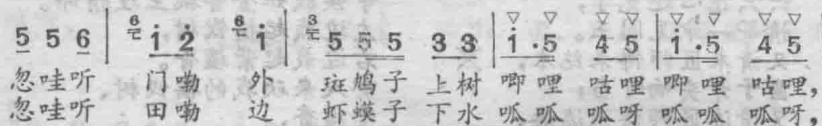 5 5 6 | 6 i 2 6 i | 3 5 5 5 3 3 | i · 5 4 5 | i · 5 4 5
忽哇听 门嘞 外 斑鸠子 上树 唧哩 咕哩 唧哩 咕哩,
忽哇听 田嘞 边 虾蟆子 下水 呱呱 呱呀 呱呱 呱呀,